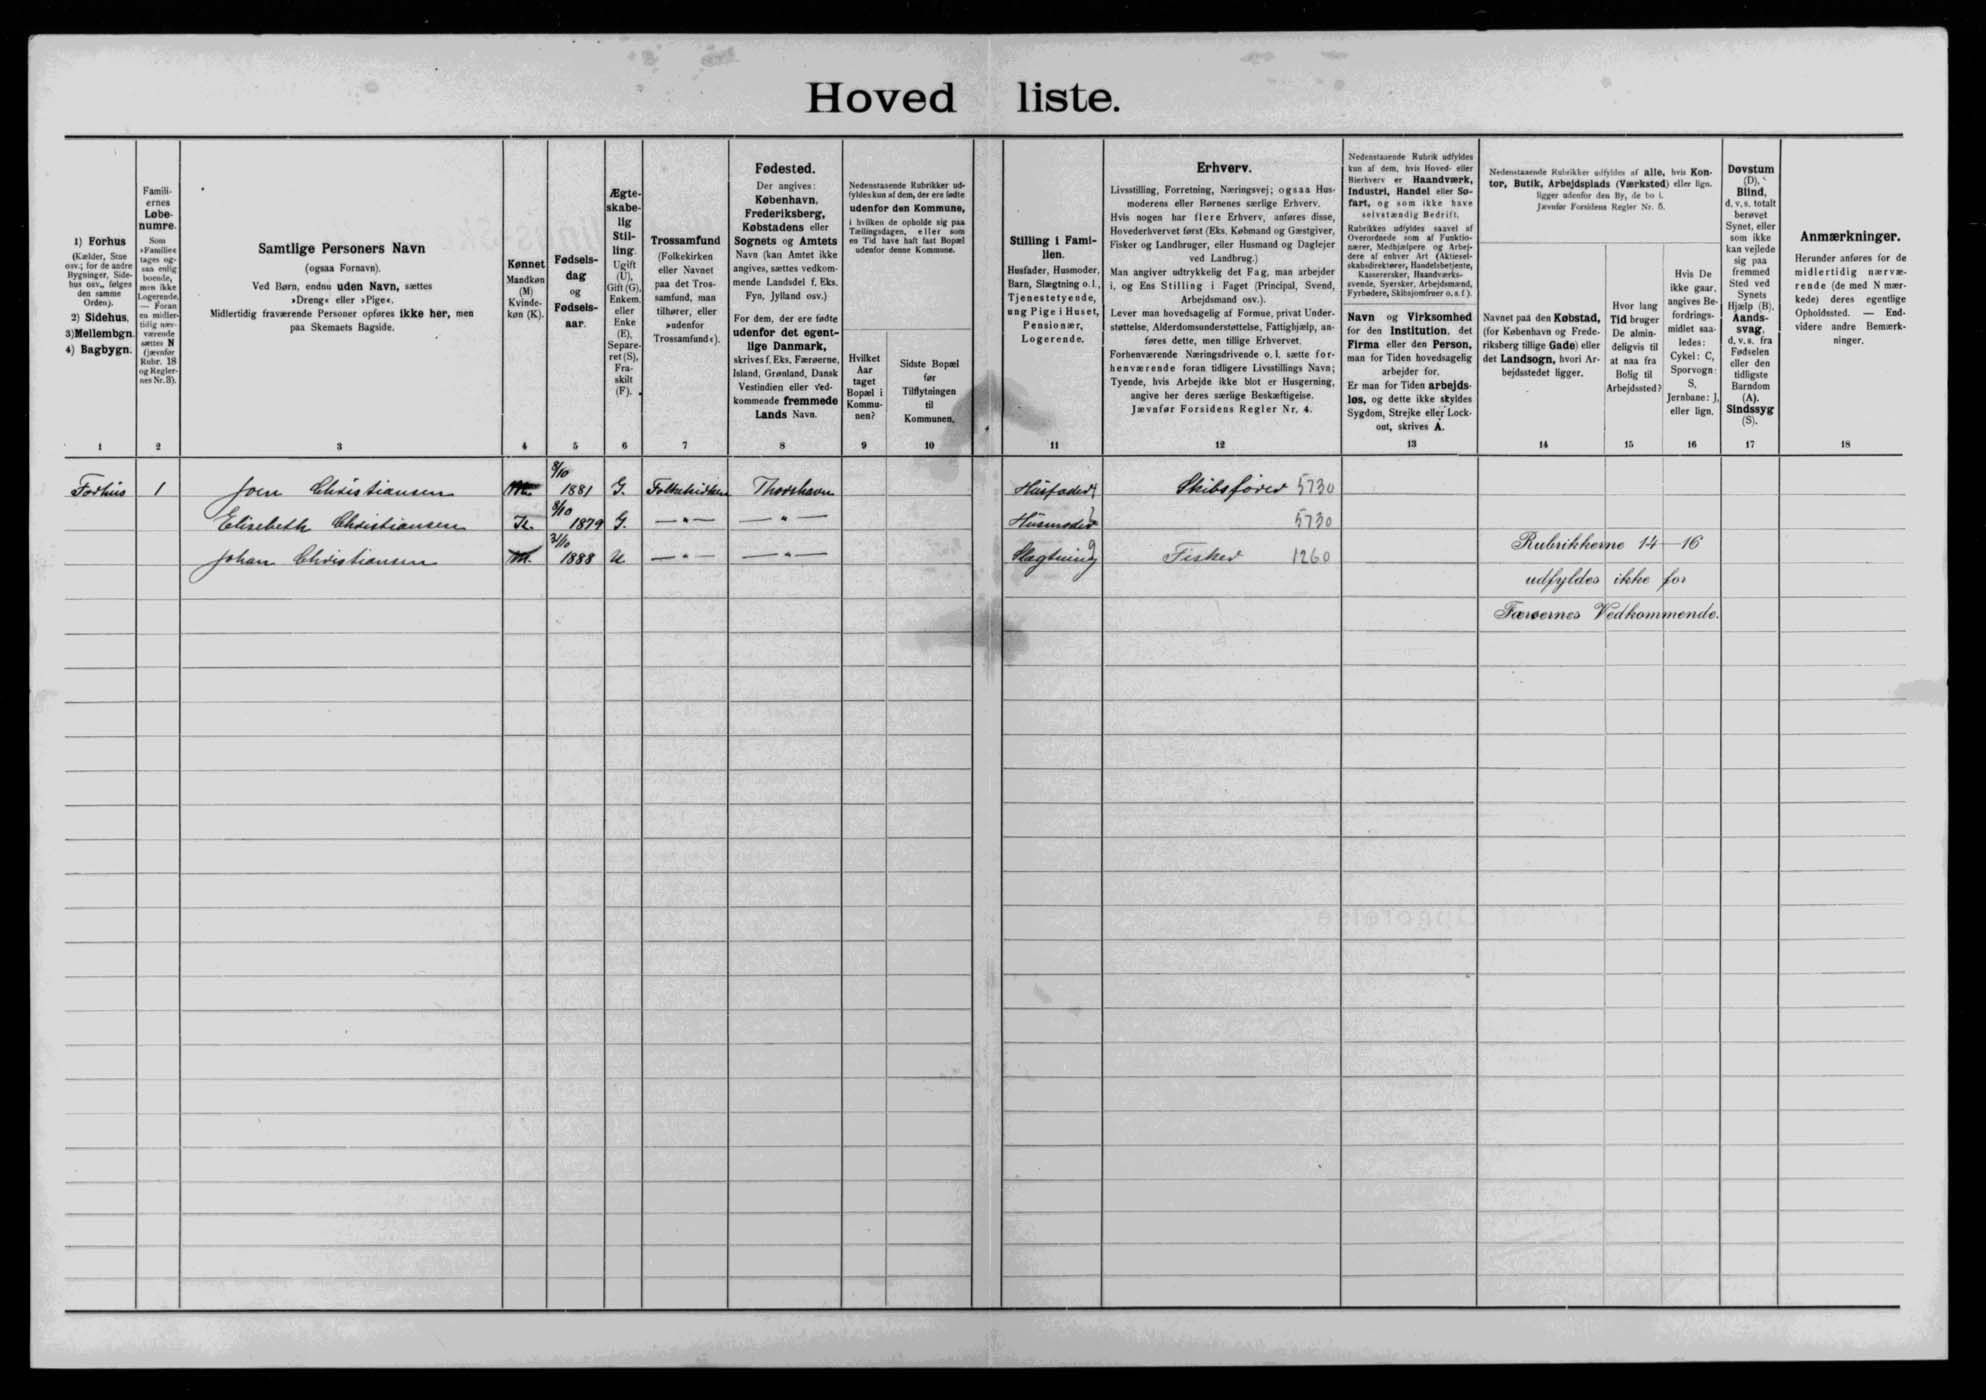 Hovedliste.
1) Forhus
(Kælder, Stue
osv.; for de andre
Bygninger, Side-
hus osv., følges
den samme
Orden).
2) Sidehus,
3) Mellembgn.
4) Bagbygn.
1
Famili-
ernes
Løbe-
numre.
Som
»Familie«
tages og-
saa enlig
boende,
men ikke
Logerende,
— Foran
en midler-
tidig nær-
værende
sættes N
(jævnfør
Rubr. 18
og Regler-
nes Nr. 3).
2
Samtlige Personers Navn
(ogsaa Fornavn).
Ved Børn, endnu uden Navn, sættes
»Dreng« eller »Pige«.
Midlertidig fraværende Personer opføres ikke her, men
paa Skemaets Bagside.
3
Kønnet
Mandkøn
(M)
Kvinde-
køn (K).
4
Fødsels-
dag
og
Fødsels-
aar.
5
Ægte-
skabe-
lig
Stil-
ling.
Ugift
(U),
Gift (G),
Enkem.
eller
Enke
(E),
Separe-
ret (S),
Fra-
skilt
(F).
6
Trossamfund
(Folkekirken
eller Navnet
paa det Tros-
samfund, man
tilhører, eller
»udenfor
Trossamfund«).
7
Fødested.
Der angives:
København,
Frederiksberg,
Købstadens eller
Sognets og Amtets
Navn (kan Amtet ikke
angives, sættes vedkom-
mende Landsdel f. Eks.
Fyn, Jylland osv.)
For dem, der ere fødte
udenfor det egent-
lige Danmark,
skrives f. Eks. Færøerne,
Island, Grønland, Dansk
Vestindien eller ved-
kommende fremmede
Lands Navn.
8
Nedenstaaende Rubrikker ud-
fyldes kun af dem, der ere fødte
udenfor den Kommune,
i hvilken de opholde sig paa
Tællingsdagen, eller som
en Tid have haft fast Bopæl
udenfor denne Kommune.
Hvilket
Aar
taget
Bopæl i
Kommu-
nen?
9
Sidste Bopæl
før
Tilflytningen
til
Kommunen.
10
Stilling i Fami-
lien.
Husfader, Husmoder,
Barn, Slægtning o. l.,
Tjenestetyende,
ung Pige i Huset,
Pensionær,
Logerende.
11
Erhverv.
Livsstilling, Forretning, Næringsvej; ogsaa Hus-
moderens eller Børnenes særlige Erhverv.
Hvis nogen har flere Erhverv, anføres disse,
Hovederhvervet først (Eks. Købmand og Gæstgiver,
Fisker og Landbruger, eller Husmand og Daglejer
ved Landbrug.)
Man angiver udtrykkelig det Fag, man arbejder
i, og Ens Stilling i Faget (Principal, Svend,
Arbejdsmand osv.).
Lever man hovedsagelig af Formue, privat Under-
støttelse, Alderdomsunderstøttelse, Fattighjælp, an-
føres dette, men tillige Erhvervet.
Forhenværende Næringsdrivende o. l. sætte for-
henværende foran tidligere Livsstillings Navn;
Tyende, hvis Arbejde ikke blot er Husgerning,
angive her deres særlige Beskæftigelse.
Jævnfør Forsidens Regler Nr. 4.
12
Nedenstaaende Rubrik udfyldes
kun af dem, hvis Hoved- eller
Bierhverv er Haandværk,
Industri, Handel eller Sø-
fart, og som ikke have
selvstændig Bedrift.
Rubrikken udfyldes saavel af
Overordnede som af Funktio-
nærer, Medhjælpere og Arbej-
dere af enhver Art (Aktiesel-
skabsdirektører, Handelsbetjente,
Kassererskere, Haandværks-
svende, Syersker, Arbejdsmænd,
Fyrbødere, Skibsjomfruer o. s. f.).
Navn og Virksomhed
for den Institution, det
Firma eller den Person,
man for Tiden hovedsagelig
arbejder for.
Er man for Tiden arbejds-
løs, og dette ikke skyldes
Sygdom, Strejke eller Lock-
out, skrives A.
13
Nedenstaaende Rubrikker udfyldes af alle, hvis Kon-
tor, Butik, Arbejdsplads (Værksted) eller lign.
ligger udenfor den By, de bo i.
Jævnfør Forsidens Regler Nr. 5.
Navnet paa den Købstad,
(for København og Frede-
riksberg tillige Gade) eller
det Landsogn, hvori Ar-
bejdsstedet ligger.
14
Hvor lang
Tid bruger
De almin-
deligvis til
at naa fra
Bolig til
Arbejdssted?
15
Hvis De
ikke gaar,
angives Be-
fordrings-
midlet saa-
ledes:
Cykel: C,
Sporvogn:
S,
Jernbane: J,
eller lign.
16
Døvstum
(D),
Blind,
d. v. s. totalt
berøvet
Synet, eller
som ikke
kan vejlede
sig paa
fremmed
Sted ved
Synets
Hjælp (B).
Aands-
svag,
d. v. s. fra
Fødselen
eller den
tidligste
Barndom
(A).
Sindssyg
(S).
17
Anmærkninger.
Herunder anføres for de
midlertidig nærvæ-
rende (de med N mær-
kede) deres egentlige
Opholdssted. — End-
videre andre Bemærk-
ninger.
18
Forhus 1 Joen Christiansen M. 8/10 1881 G. Folkekirken Thorshavn Husfader Skibsfører 5730
Elisebeth Christiansen K. 8/10 1879 G. — " — — " — Husmoder 5730
Johan Christiansen M. 21/10 1888 U. — " — — " — Slægtning Fisker 1260
Rubrikkerne 14–16
udfyldes ikke for
Færøernes Vedkommende.